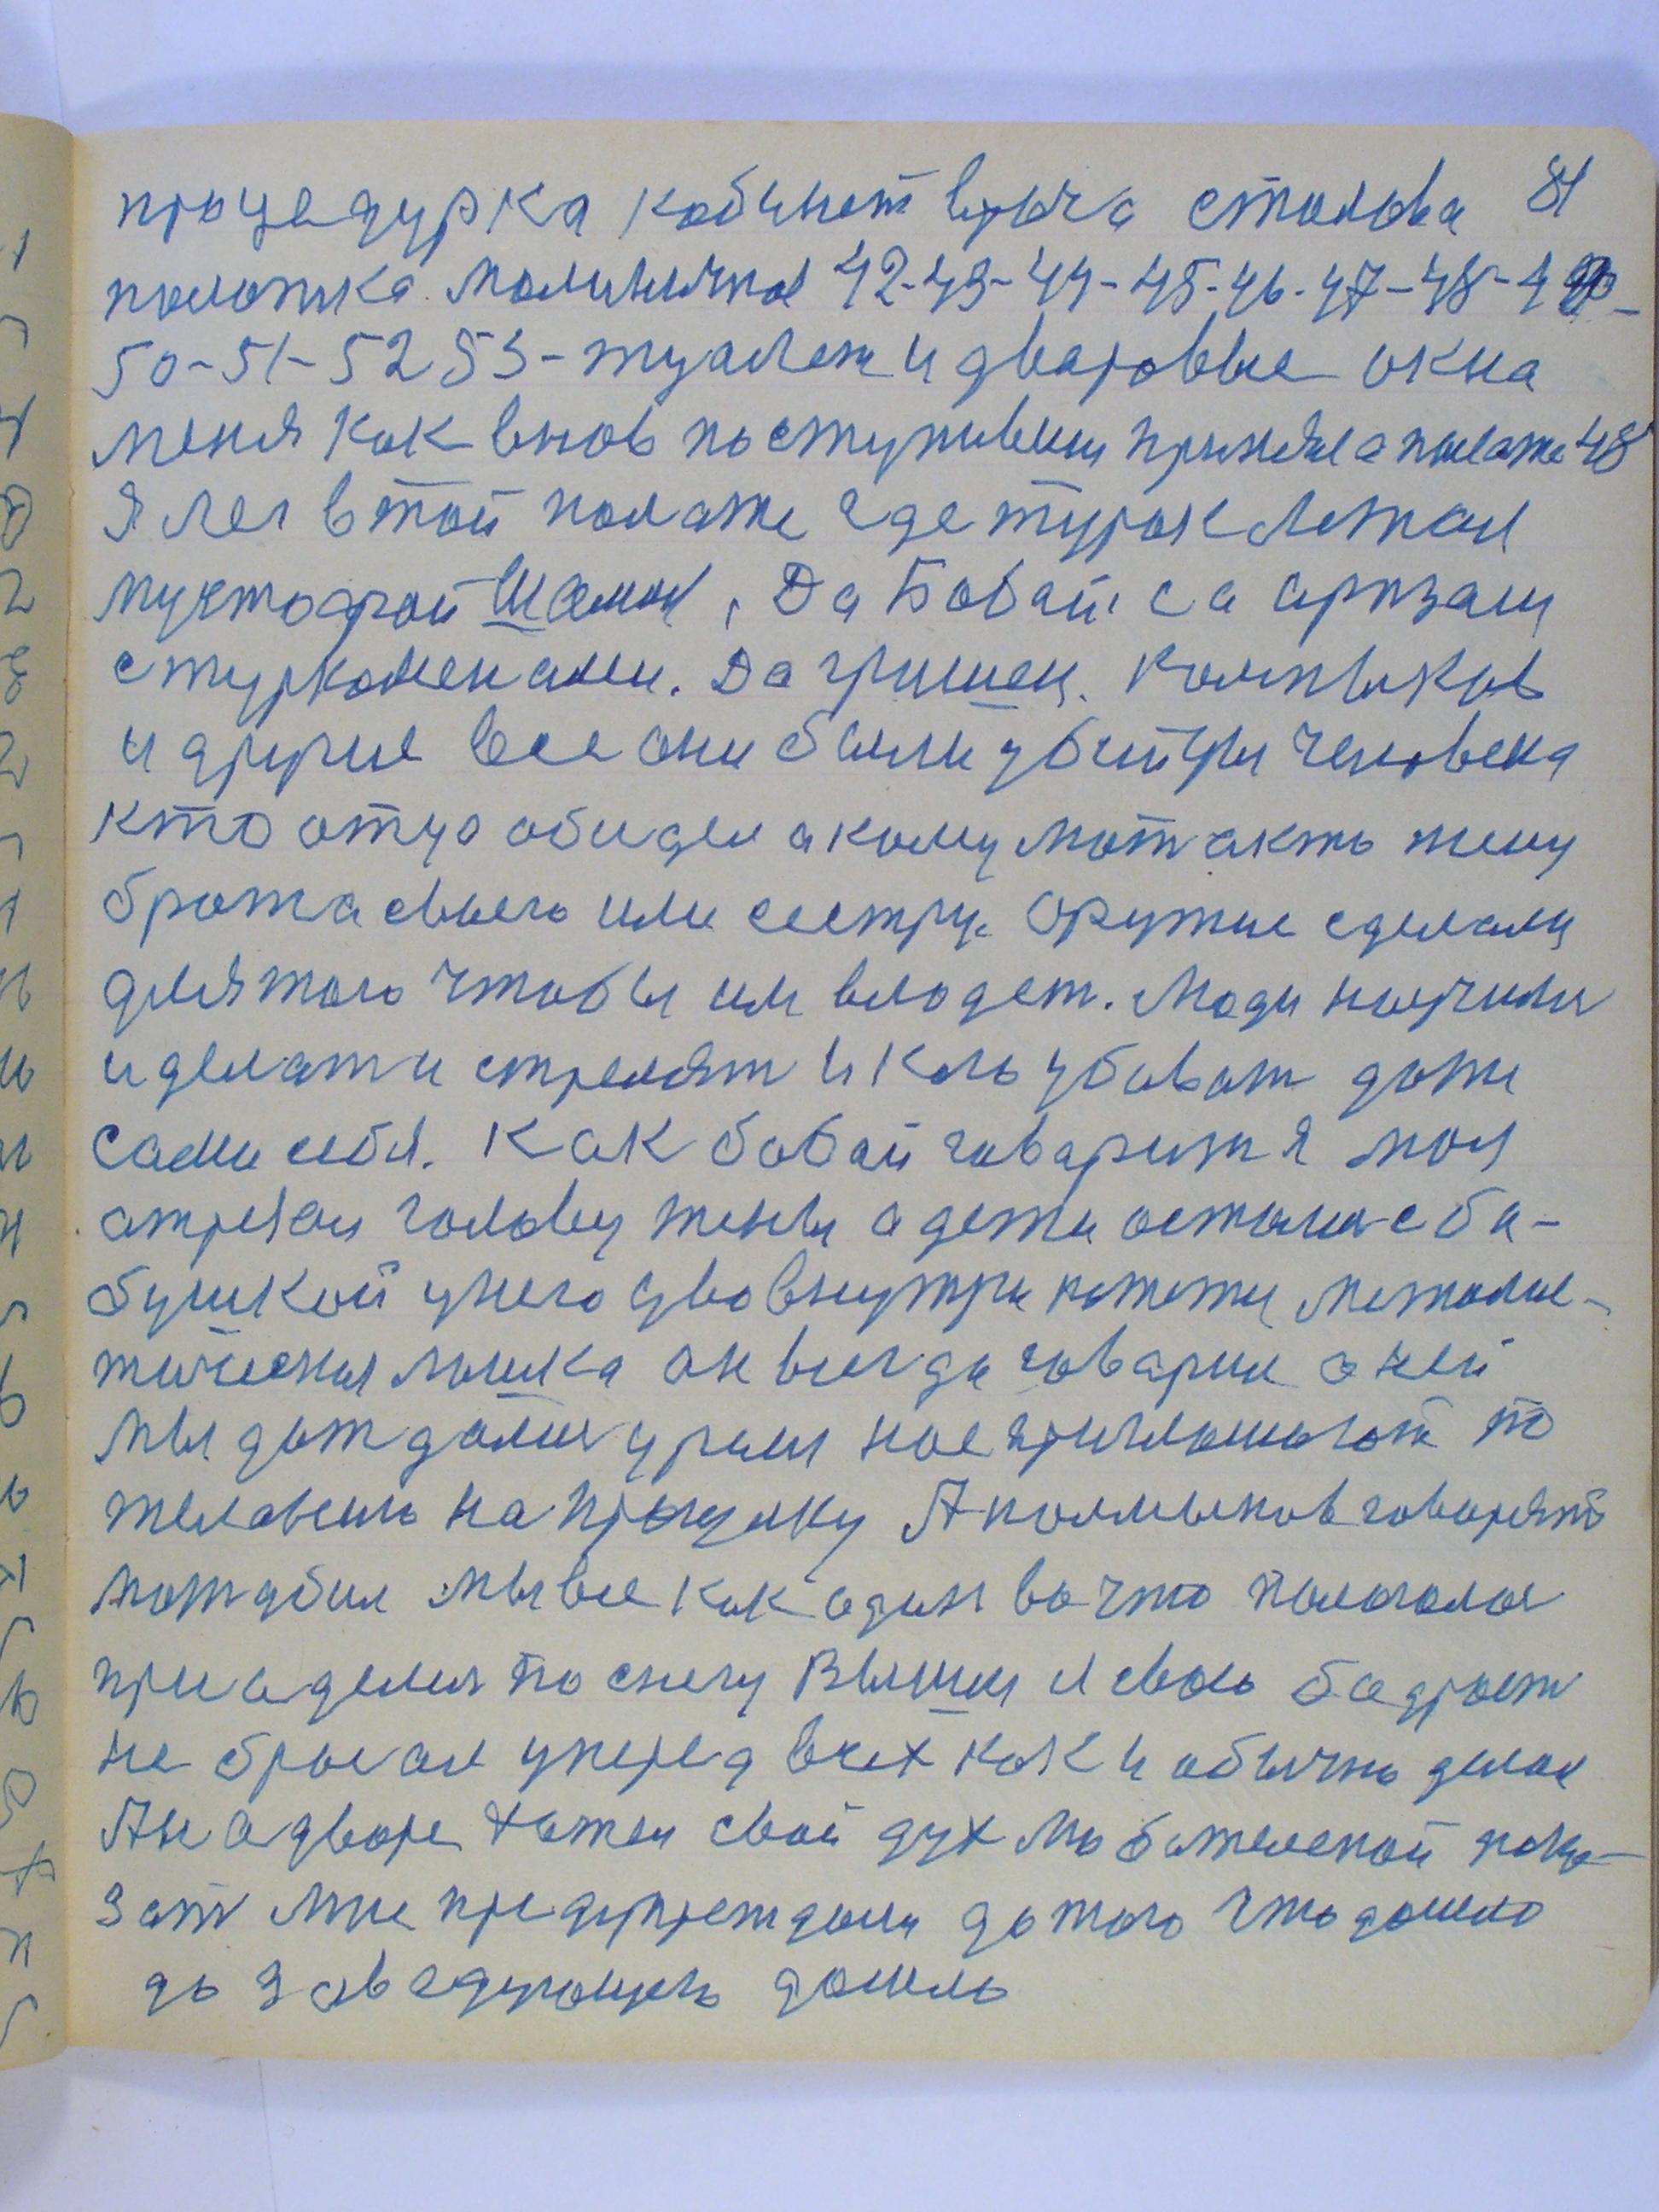 процедурка кобинет врача столова 81
полотка маличная 42-43-44-45-46-47-48-49-
50-51-52 53-туалет и дваровые окна
меня как внов поступивши приняла полата 48
Я лег втой полате где турок лежал
мустафой Шамил, Да Бабай са
с туркоменами. Да гришен. Колпыков
и другие все они были убийцы человека
кто отцо обидел а кому жену
брата своего или сестру. Оружие сделали
длятого чтобы им влодет. Люди научили
и делати стрелят и убиват даже
сами себя. Как бабай говарит я мол
атрезал голову жены а дети остались с ба-
бушкой унего два внутри метоли-
тическия он всегда говарил о ней
мы даждалис нас приглашают по
желавшие на прагулку А колмыков говарят
мы все как адин во что
приаделис по снегу Вышли и свою бадрост
не бросал уперед всех как и обычно делал
Ан а дворе хотел свой дух показ-
зат Мне предупреждали до того что дошло
до заведующего дошло